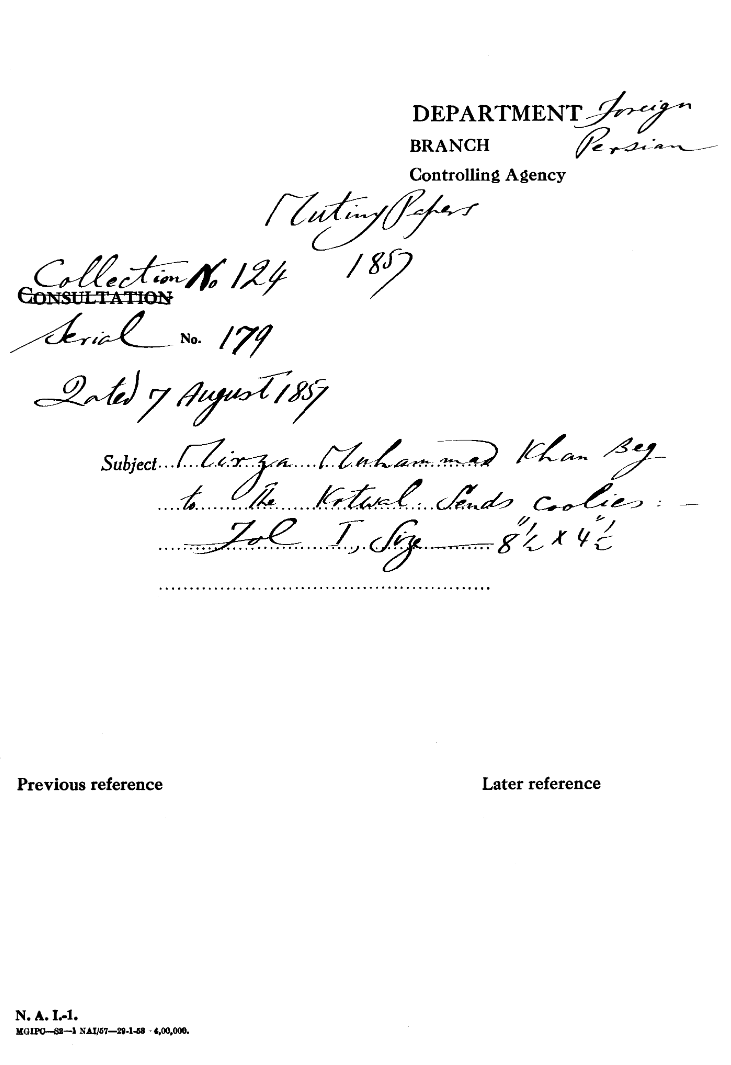 DEPARTMENT Foreign
BRANCH Persian
Controlling Agency
Mutiny Papers
1857
Collection No 124
CONSULTATION
Serial No. 179
Dated 7 August 1857
Subject Mirza Muhammad Khan Beg
to the Kotwal. Sends coolies: -
Fol I, Size 8"½ x 4"½
Previous reference
Later reference
N. A. I.-1.
MGIPC—S2—1 NAI/57—29-1-58 - 4,00,000.